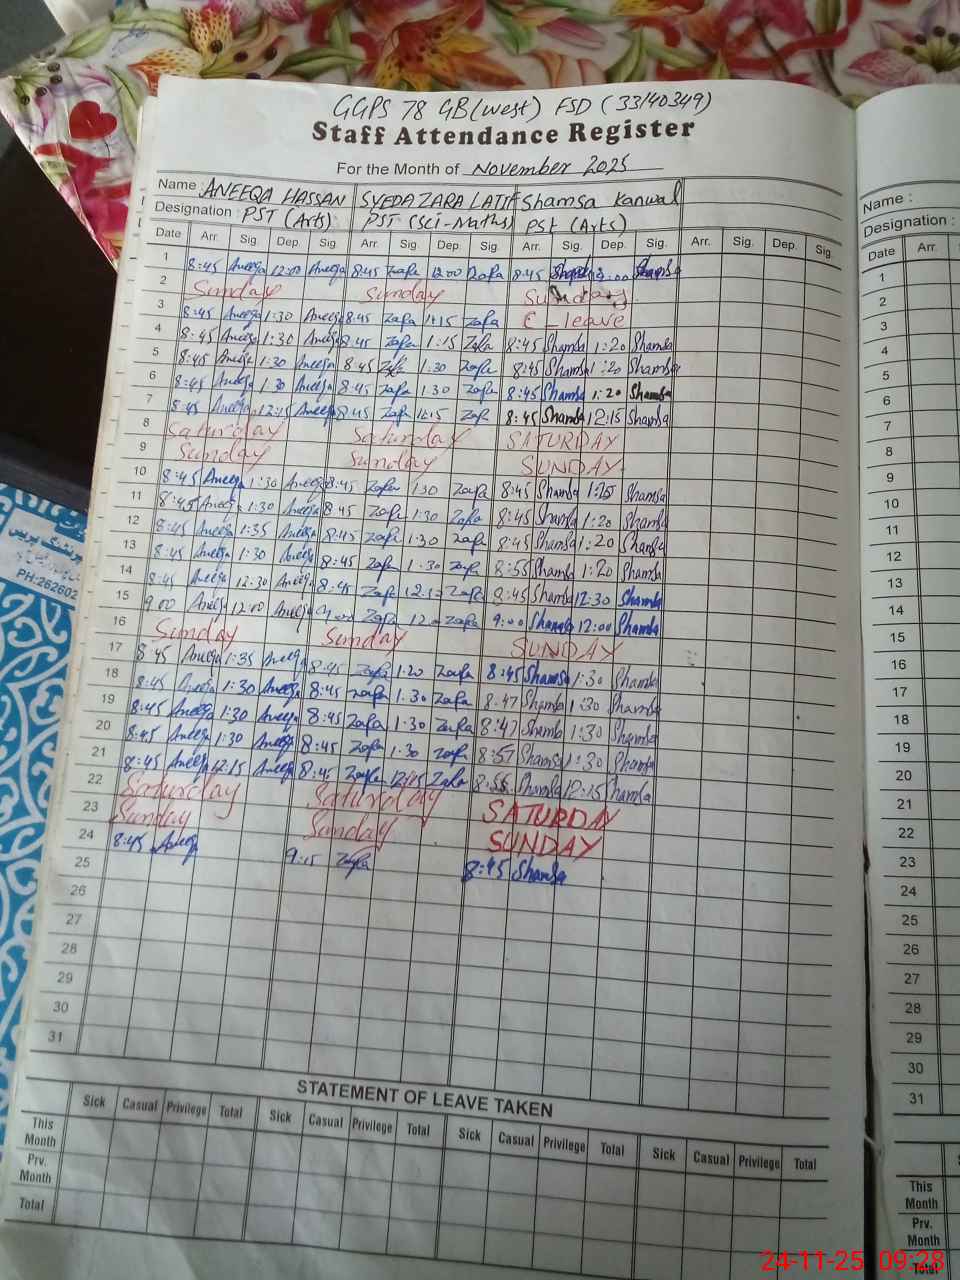 GGPS 78 GB (West) FSD (33140349)
Staff Attendance Register
For the Month of November 2025
Name : ANEEQA HASSAN SYEDA ZARA LATIF Shamsa Kanwal
Designation : PST (Arts) PST (Sci-Maths) PST (Arts)
Date Arr. Sig. Dep. Sig. Arr. Sig. Dep. Sig. Arr. Sig. Dep. Sig. Arr. Sig. Dep. Sig.
1 8:45 Aneeqa 12:00 Aneeqa 8:45 Zafa 12:00 Zafa 8:45 Shamsa
2 Sunday Sunday Sunday
3 8:45 Aneeqa 1:30 Aneeqa 8:45 Zafa 1:15 Zafa C-leave
4 8:45 Aneeqa 1:30 Aneeqa 8:45 Zafa 1:15 Zafa 8:45 Shamsa 1:20 Shamsa
5 8:45 Aneeqa 1:30 Aneeqa 8:45 Zafa 1:30 Zafa 8:45 Shamsa 1:20 Shamsa
6 8:45 Aneeqa 1:30 Aneeqa 8:45 Zafa 1:30 Zafa 8:45 Shamsa 1:20 Shamsa
7 8:45 Aneeqa 12:15 Aneeqa 8:45 Zafa 12:15 Zafa 8:45 Shamsa 12:15 Shamsa
8 Saturday Saturday SATURDAY
9 Sunday Sunday SUNDAY
10 8:45 Aneeqa 1:30 Aneeqa 8:45 Zafa 1:30 Zafa 8:45 Shamsa Shamsa
11 8:45 Aneeqa 1:30 Aneeqa 8:45 Zafa 1:30 Zafa 8:45 Shamsa 1:20 Shamsa
12 8:45 Aneeqa 1:35 Aneeqa 8:45 Zafa 1:30 Zafa 8:45 Shamsa 1:20 Shamsa
13 8:45 Aneeqa 1:30 Aneeqa 8:45 Zafa 1:30 Zafa 8:55 Shamsa 1:20 Shamsa
14 8:45 Aneeqa 12:30 Aneeqa 8:45 Zafa Zafa 8:45 Shamsa 12:30 Shamsa
15 9:00 Aneeqa 12:00 Aneeqa 9:00 Zafa 12:00 Zafa 9:00 Shamsa 12:00 Shamsa
16 Sunday Sunday SUNDAY
17 8:45 Aneeqa 1:35 Aneeqa 8:45 Zafa 1:20 Zafa 8:45 Shamsa 1:30 Shamsa
18 8:45 Aneeqa 1:30 Aneeqa 8:45 Zafa 1:30 Zafa 8:47 Shamsa 1:30 Shamsa
19 8:45 Aneeqa 1:30 Aneeqa 8:45 Zafa 1:30 Zafa 8:47 Shamsa 1:30 Shamsa
20 8:45 Aneeqa 1:30 Aneeqa 8:45 Zafa 1:30 Zafa 8:57 Shamsa 1:30 Shamsa
21 8:45 Aneeqa 12:15 Aneeqa 8:45 Zafa 12:15 Zafa 8:55 Shamsa 12:15 Shamsa
22 Saturday Saturday SATURDAY
23 Sunday Sunday SUNDAY
24 8:45 Aneeqa 9:15 Zafa 8:45 Shamsa
25
26
27
28
29
30
31
STATEMENT OF LEAVE TAKEN
Sick Casual Privilege Total Sick Casual Privilege Total Sick Casual Privilege Total Sick Casual Privilege Total
This Month
Prv. Month
Total
Name :
Designation :
Date Arr.
1
2
3
4
5
6
7
8
9
10
11
12
13
14
15
16
17
18
19
20
21
22
23
24
25
26
27
28
29
30
31
This Month
Prv. Month
Total
PH:262602
24-11-25 09:28